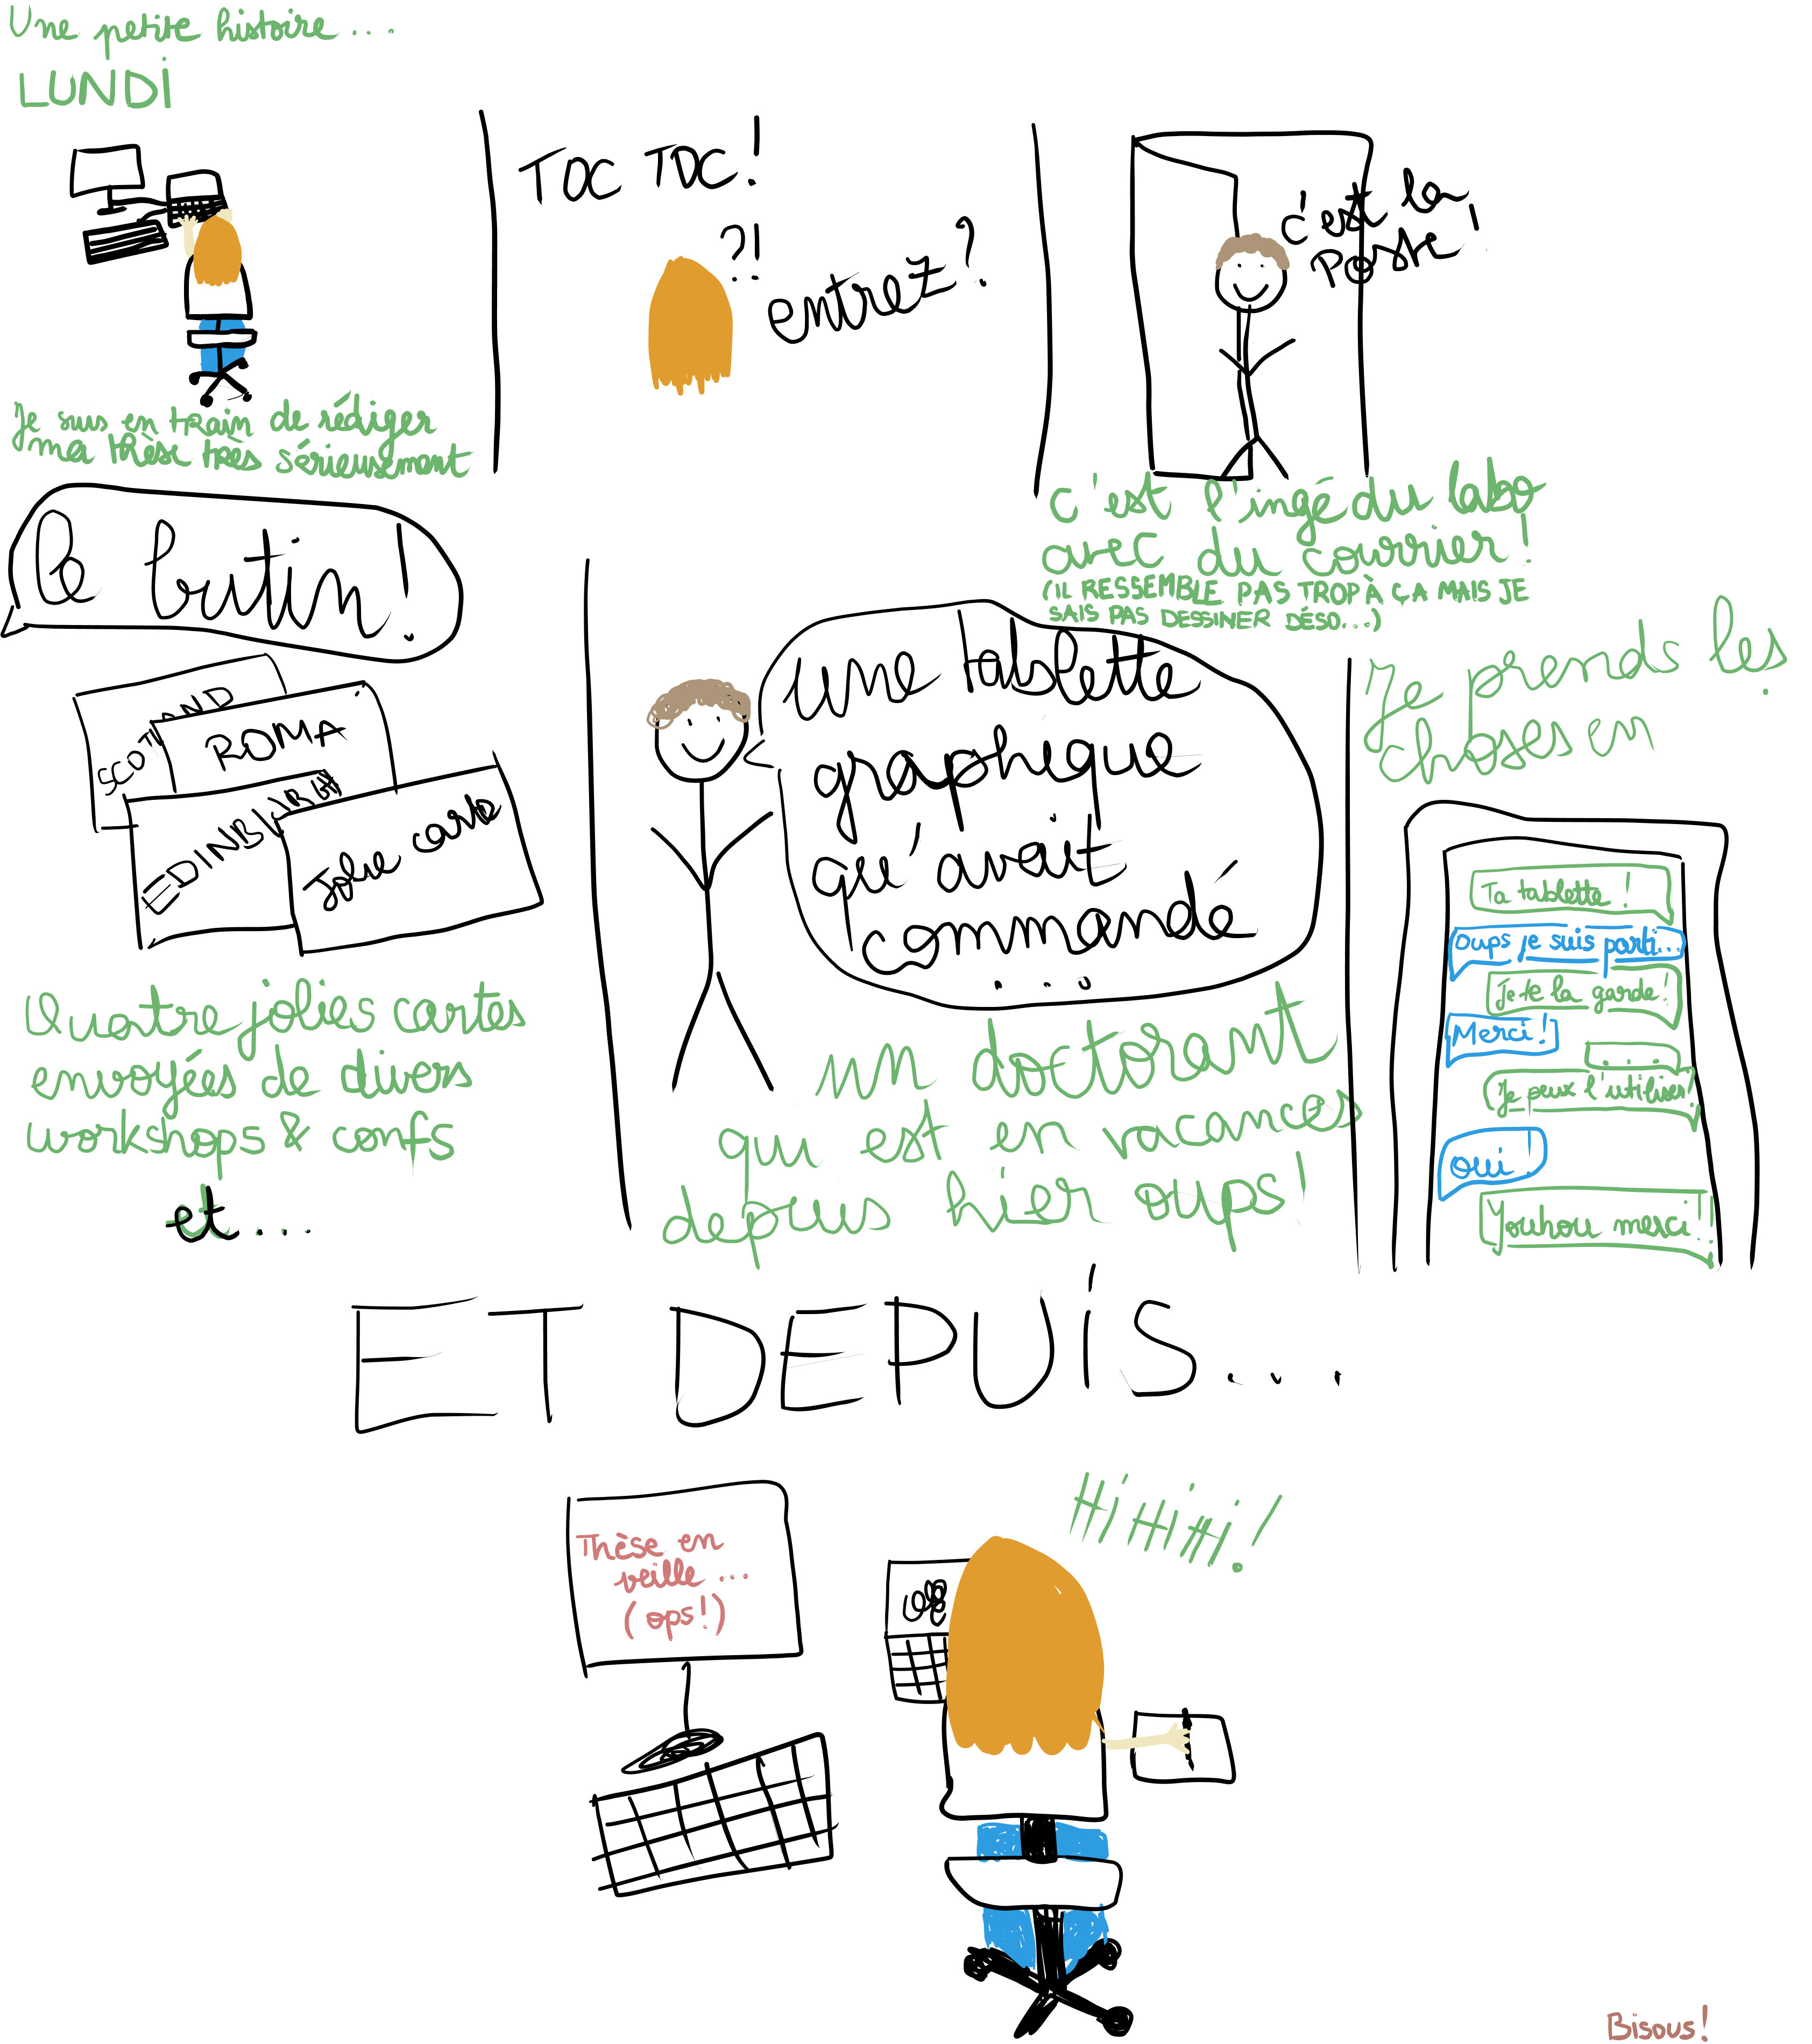 Une petite histoire ....
LUNDI
Je suis en train de rédiger
ma thèse très sérieusement
TOC TOC!
?!
entrez?
c'est la
poste!
c'est l'ingé du labo
avec du courrier!
(IL RESSEMBLE PAS TROP À ÇA MAIS JE
SAIS PAS DESSINER DÉSO...)
Le butin!
SCOTLAND
ROMA
EDINBURGH
Jolie carte
Quatre jolies cartes
envoyées de divers
workshops & confs
et ....
une tablette
graphique
qu'avait
commandé
...
un doctorant
qui est en vacances
depuis hier oups!
Je prends les
choses en
Ta tablette !
Oups je suis parti...
Je te la garde!
Merci!
....
Je peux l'utiliser?
oui!
Youhou merci!!
ET DEPUIS...
Thèse en
veille ...
(ops!)
Hi Hi Hi!
Bisous!